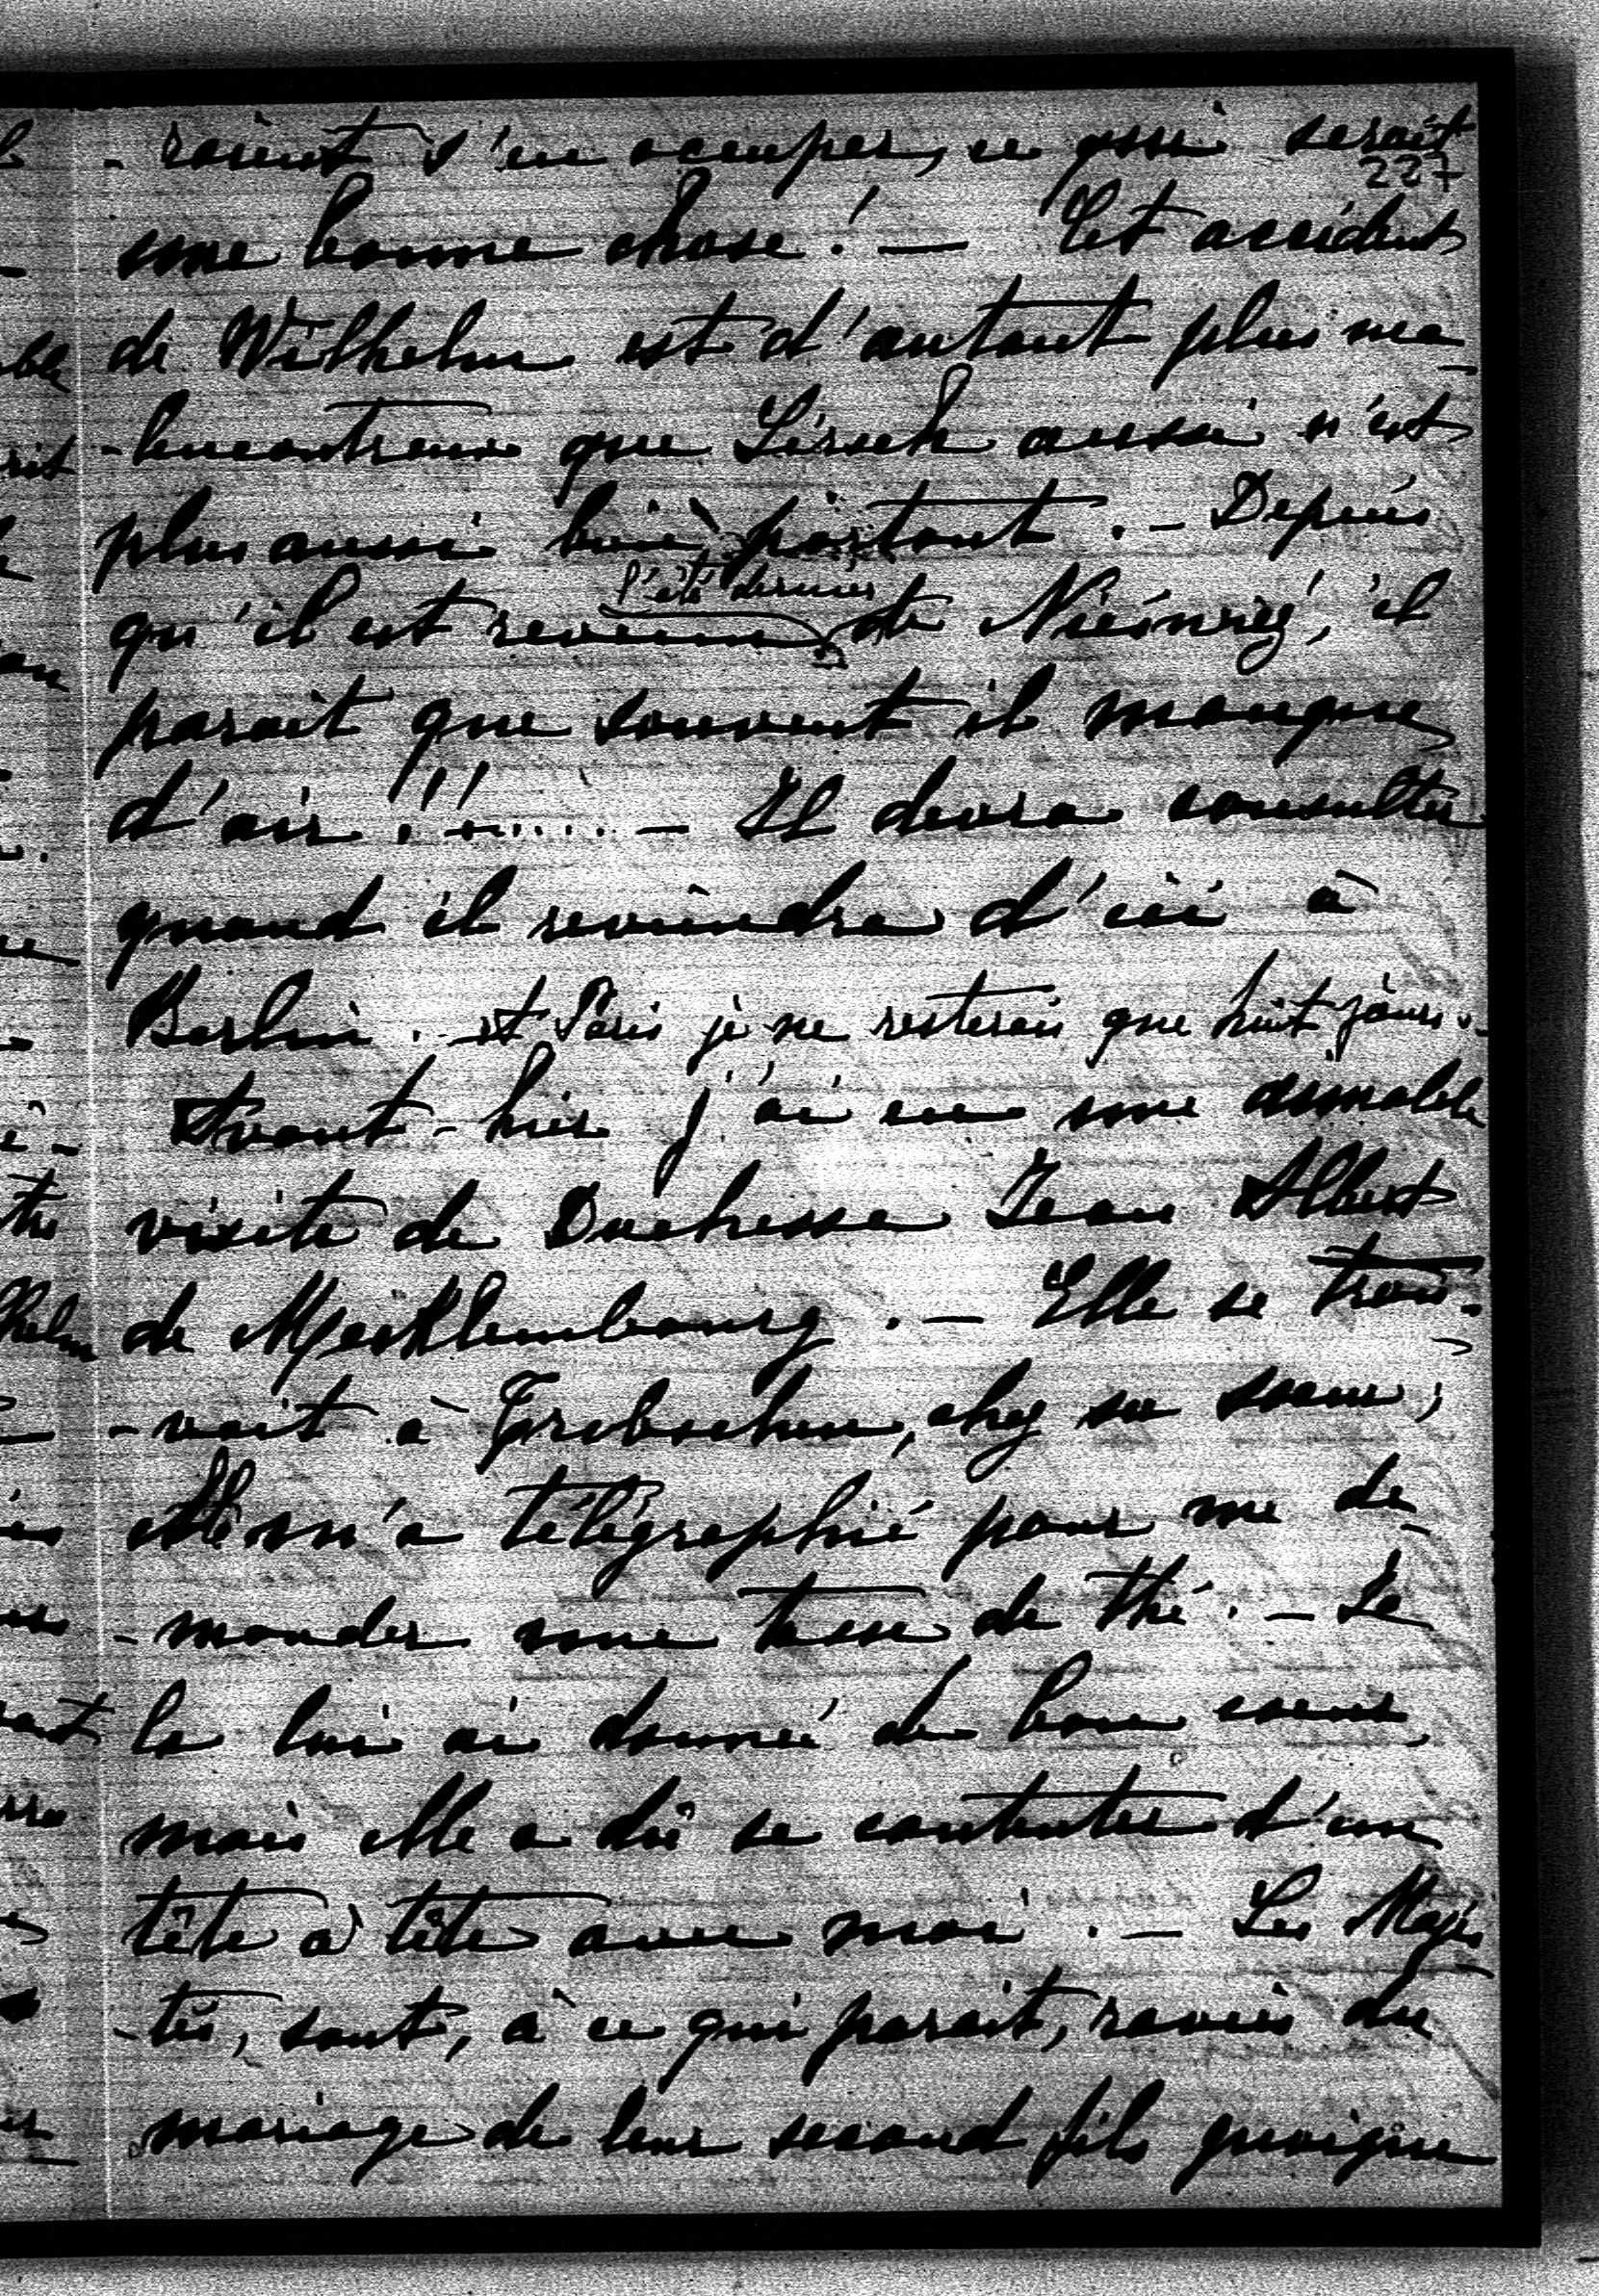 - raient s'en occuper, ce qui serait
237
une bonne chose! — Cet accident
de Wilhelm est d'autant plus ma-
-lencontreux que Lirsch aussi n'est
plus aussi bien portant. — Depuis
l'été dernier
qu'il est revenu de Nieśwież, il
parait que souvent il manque
d'air!!...... — Il devra consulter
quand il reviendra d'ici à
Berlin. — et Paris je ne resterais que huit jours. —
Avant-hier j'ai eu une aimable
visite de Duchesse Jean Albert
de Mecklembourg. — Elle se trou-
-vait à Trebschen, chez sa soeur,
elle m'a télégraphié pour me de-
-mander une tasse de thé. — Je
la lui ai donné de bon coeur,
mais elle a dû se contenter d'un
tête à tête avec moi. — Les Majes-
-tés, sont, à ce qui parait, ravies du
mariage de leur second fils quoique